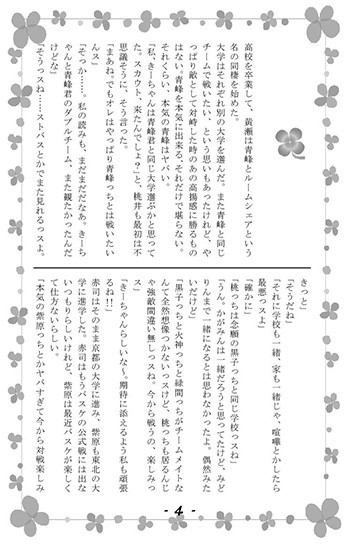 高校を卒業して、黄瀬は青峰とルームシェアという
名の同棲を始めた。
大学はそれぞれ別の大学を選んだ。また青峰と同じ
チームで戦いたい、という思いもあったけれど、や
っぱり敵として対峙した時のあの高揚感に勝るもの
はない。青峰を本気に出来る、それだけで堪らない。
それくらい、本気の青峰はヤバい。
「私、きーちゃんは青峰君と同じ大学選ぶかと思って
た。スカウト、来たんでしょ？」と、桃井も最初は不
思議そうに、そう言った。
「まあね。でもオレはやっぱり青峰っちとは戦いたい
んス」
「そっか……。私の読みも、まだまだだなあ。きーち
ゃんと青峰君のダブルチーム、また観たかったんだ
けどな」
「そうっスね……ストバスとかでまた見れるっスよ。
きっと」
「そうだね」
「それに学校も一緒、家も一緒じゃ、喧嘩とかしたら
最悪っスよ」
「確かに」
「桃っちは念願の黒子っちと同じ学校っスね」
「うん。かがみんは一緒だろうと思ってたけど、みど
りんまで一緒になるとは思わなかったよ。偶然みた
いだけど」
「黒子っちと火神っちと緑間っちがチームメイトな
んて全然想像つかないっスけど、桃っちも居るんじ
ゃ強敵間違い無しっスね。今から戦うの、楽しみっ
ス」
「きーちゃんらしいな〜。期待に添えるよう私も頑張
るね！！」
赤司はそのまま京都の大学に進み、紫原も東北の大
学に進学した。赤司はもうバスケの公式戦には出な
いつもりらしいけれど、紫原は最近バスケが楽しく
て仕方ないらしい。
「本気の紫原っちとかヤバすぎて今から対戦楽しみ
- 4 -